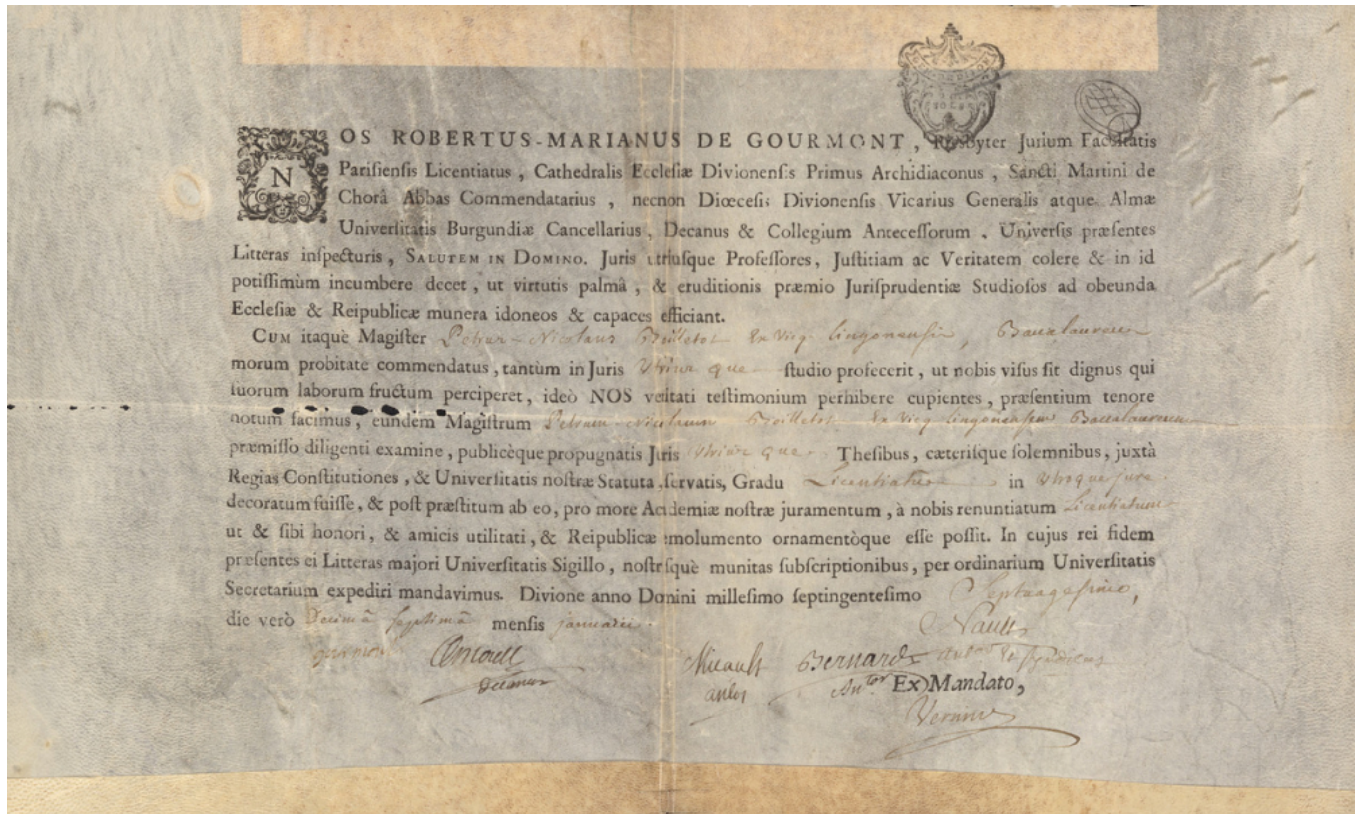 NOS ROBERTUS-MARIANUS DE GOURMONT, Presbyter Jurium Facultatis
Pariſienſis Licentiatus, Cathedralis Eccleſiæ Divionenſis Primus Archidiaconus, Sancti Martini de
Chorâ Abbas Commendatarius, necnon Diœceſis Divionenſis Vicarius Generalis atque Almæ
Univerſitatis Burgundiæ Cancellarius, Decanus & Collegium Anteceſſorum. Univerſis præſentes
Litteras inſpecturis, SALUTEM IN DOMINO. Juris utriuſque Profeſſores, Juſtitiam ac Veritatem colere & in id
potiſſimùm incumbere decet, ut virtutis palmâ, & eruditionis præmio Juriſprudentiæ Studioſos ad obeunda
Eccleſiæ & Reipublicæ munera idoneos & capaces efficiant.
CUM itaquè Magiſter Petrus-Nicolaus Boilletot ex Vicq Lingonensis, Baccalaureus
morum probitate commendatus, tantùm in Juris Utriusque ſtudio profecerit, ut nobis viſus ſit dignus qui
ſuorum laborum fructum perciperet, ideò NOS veritati teſtimonium perhibere cupientes, præſentium tenore
notum facimus, eundem Magiſtrum Petrum-Nicolaum Boilletot ex Vicq Lingonensem Baccalaureum
præmiſſo diligenti examine, publicèque propugnatis Juris Utriusque Theſibus, cæteriſque ſolemnibus, juxtà
Regias Conſtitutiones, & Univerſitatis noſtræ Statuta, ſervatis, Gradu Licentiatus in Utroque jure
decoratum fuiſſe, & poſt præſtitum ab eo, pro more Academiæ noſtræ juramentum, à nobis renuntiatum Licentiatum
ut & ſibi honori, & amicis utilitati, & Reipublicæ emolumento ornamentòque eſſe poſſit. In cujus rei fidem
præſentes ei Litteras majori Univerſitatis Sigillo, noſtriſquè munitas ſubſcriptionibus, per ordinarium Univerſitatis
Secretarium expediri mandavimus. Divione anno Domini milleſimo ſeptingenteſimo Septuagesimo,
die verò Decimâ septimâ menſis januarii.
Nault
Gourmont Micault Bernard
Decanus
Ex Mandato,